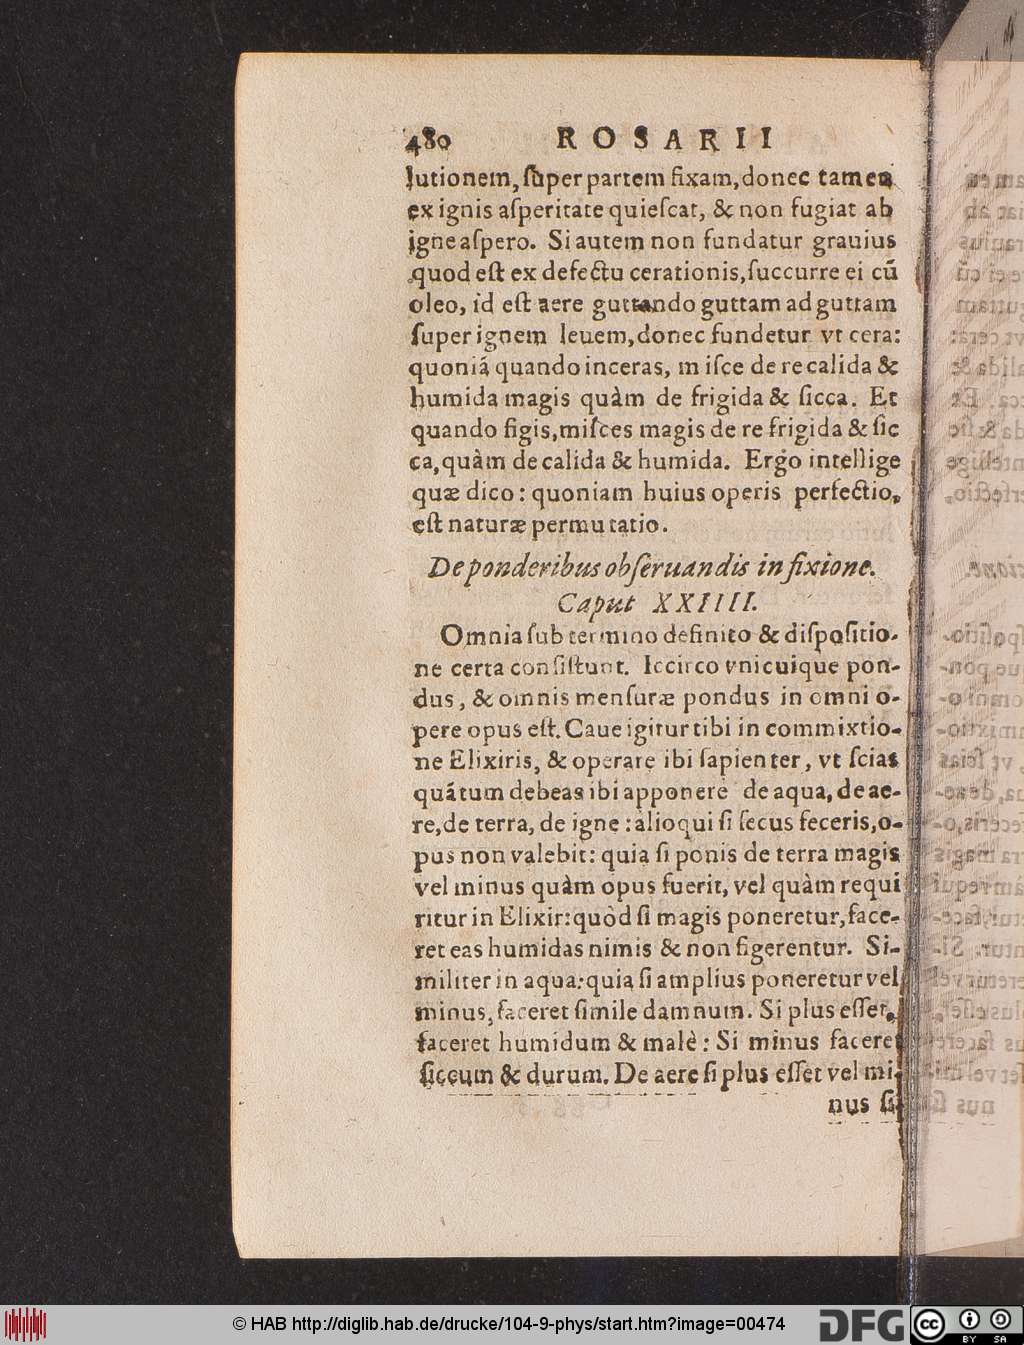 480 ROSARII
lutionem, ſuper partem fixam, donec tamen
ex ignis aſperitate quieſcat, & non fugiat ab
igne aſpero. Si autem non fundatur grauius
quod eſt ex defectu cerationis, ſuccurre ei cū
oleo, id eſt aere guttando guttam ad guttam
ſuper ignem leuem, donec fundetur vt cera:
quoniá quando inceras, miſce de re calida &
humida magis quàm de frigida & ſicca. Et
quando figis, miſces magis de re frigida & ſic
ca, quàm de calida & humida. Ergo intellige
quæ dico: quoniam huius operis perfectio,
eſt naturæ permutatio.
De ponderibus obſeruandis in fixione.
Caput XXIIII.
Omnia ſub termino definito & diſpoſitio-
ne certa conſiſtunt. Iccirco vnicuique pon-
dus, & omnis menſuræ pondus in omni o-
pere opus eſt. Caue igitur tibi in commixtio-
ne Elixiris, & operare ibi ſapienter, vt ſcias
quátum debeas ibi apponere de aqua, de ae-
re, de terra, de igne: alioqui ſi ſecus feceris, o-
pus non valebit: quia ſi ponis de terra magis
vel minus quàm opus fuerit, vel quàm requi
ritur in Elixir: quòd ſi magis poneretur, face-
ret eas humidas nimis & non figerentur. Si-
militer in aqua: quia ſi amplius poneretur vel
minus, faceret ſimile damnum. Si plus eſſet,
faceret humidum & malè: Si minus faceret
ſiccum & durum. De aere ſi plus eſſet vel mi-
nus ſi
© HAB http://diglib.hab.de/drucke/104-9-phys/start.htm?image=00474
DFG
cc BY SA